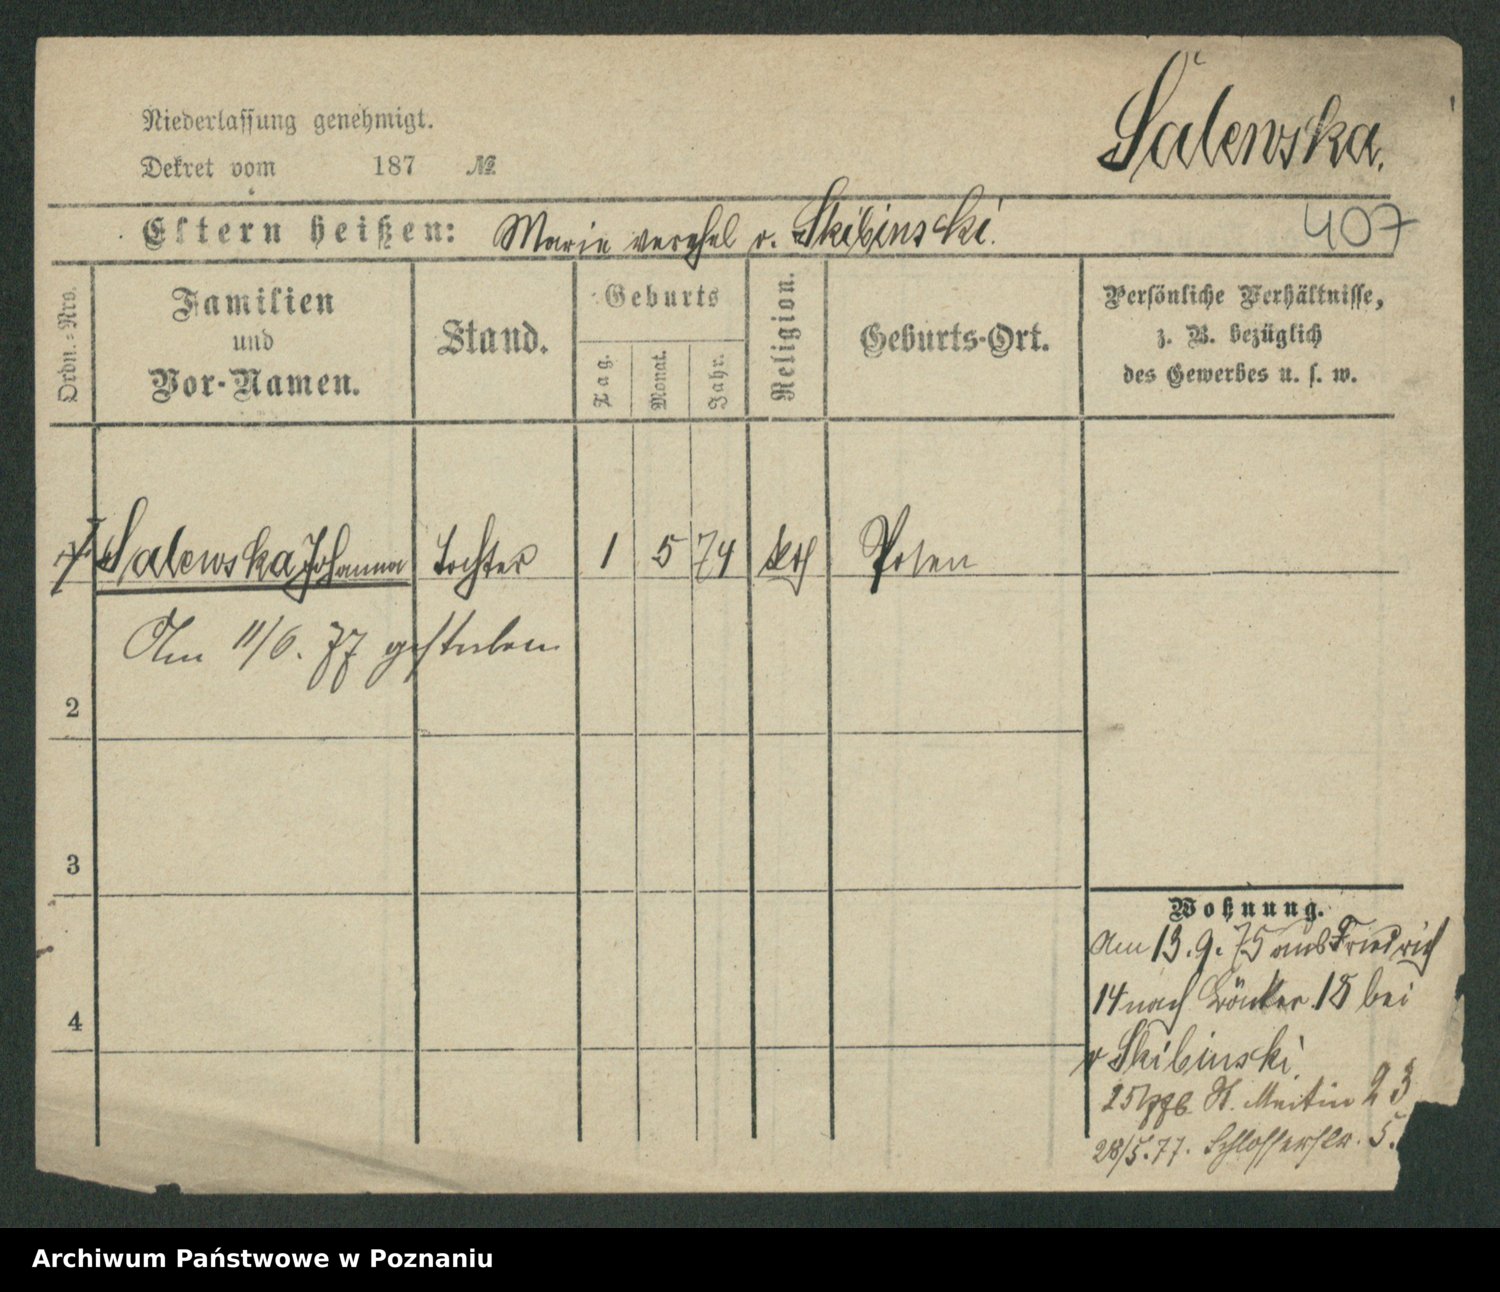 Salewska.
Niederlassung genehmigt.
Dekret vom 187 №
Eltern heißen: Marie verehel v. Skibinski.
407
Ordn.=Nrs.
Familien
und
Vor-Namen.
Stand.
Geburts
Tag.
Monat.
Jahr.
Religion.
Geburts-Ort.
Persönliche Verhältnisse,
z. B. bezüglich
des Gewerbes u. s. w.
1 Salewska Johanna Tochter 1 5 74 kth Posen
Am 11/6. 77 gestorben
2
3
4
Wohnung.
Am 13. 9. 75 aus Friedrich
14 nach 18 bei
v Skibinski.
St. Martin 23
28/5. 77. Schlosserstr. 5.
Archiwum Państwowe w Poznaniu